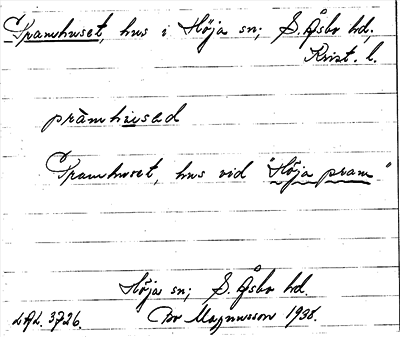 Pramhuset, hus i Höja sn; S. Åsbo hd,
Krist. l.
pràmhused
Pramhuset, hus vid "Höja pram"
Höja sn; S. Åsbo hd
LAL. 3726. Bo Magnusson 1938.